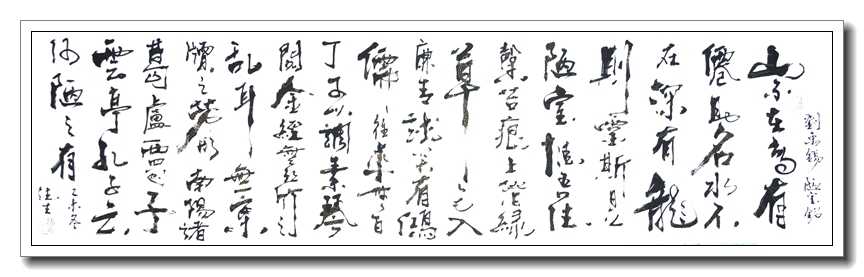 劉禹錫 陋室銘
山不在高有
僊則名水不
在深有龍
則靈斯是
陋室惟吾德
馨苔痕上階緑
草色入
簾青談笑有鴻
儒往來無白
丁可以調素琴
閱金經無絲竹之
亂耳無案
牘之勞形南陽諸
葛廬西蜀子
雲亭孔子云
何陋之有
乙未冬